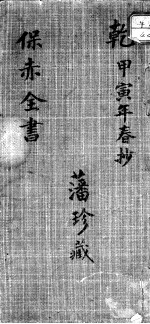 乾 甲寅年春抄
藩珍藏
保赤全書